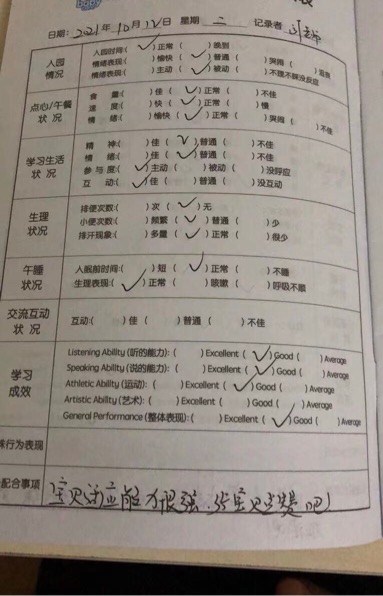 日期: 2021年10月12日 星期 二 记录者
入园情况
入园时间:( ✓ )正常 ( )晚到
情绪表现:( )愉快 ( ✓ )普通 ( )哭闹
情绪表现:( )主动 ( ✓ )被动 ( )不理不睬没反应
点心/午餐状况
食 量:( )佳 ( ✓ )正常 ( )不佳
速 度:( )快 ( ✓ )正常 ( )慢
情 绪:( )愉快 ( ✓ )正常 ( )哭闹 ( )不佳
学习生活状况
精 神:( )佳 ( ✓ )普通 ( )不佳
情 绪:( )佳 ( ✓ )普通 ( )不佳
参 与 度:( ✓ )主动 ( )被动 ( )没呼应
互 动:( ✓ )佳 ( )普通 ( )没互动
生理状况
排便次数:( )次 ( ✓ )无
小便次数:( )频繁 ( ✓ )普通 ( )少
排汗现象:( )多量 ( ✓ )正常 ( )很少
午睡状况
入眠前时间:( )短 ( ✓ )正常 ( )不睡
生理表现:( ✓ )正常 ( )咳嗽 ( )呼吸不顺
交流互动状况
互动:( )佳 ( )普通 ( )不佳
学习成效
Listening Ability (听的能力): ( )Excellent ( ✓ )Good ( )Average
Speaking Ability (说的能力): ( )Excellent ( ✓ )Good ( )Average
Athletic Ability (运动): ( )Excellent ( ✓ )Good ( )Average
Artistic Ability (艺术): ( )Excellent ( )Good ( )Average
General Performance (整体表现): ( )Excellent ( ✓ )Good ( )Average
殊行为表现
配合事项
宝贝适应能力很强.给宝贝点赞吧!